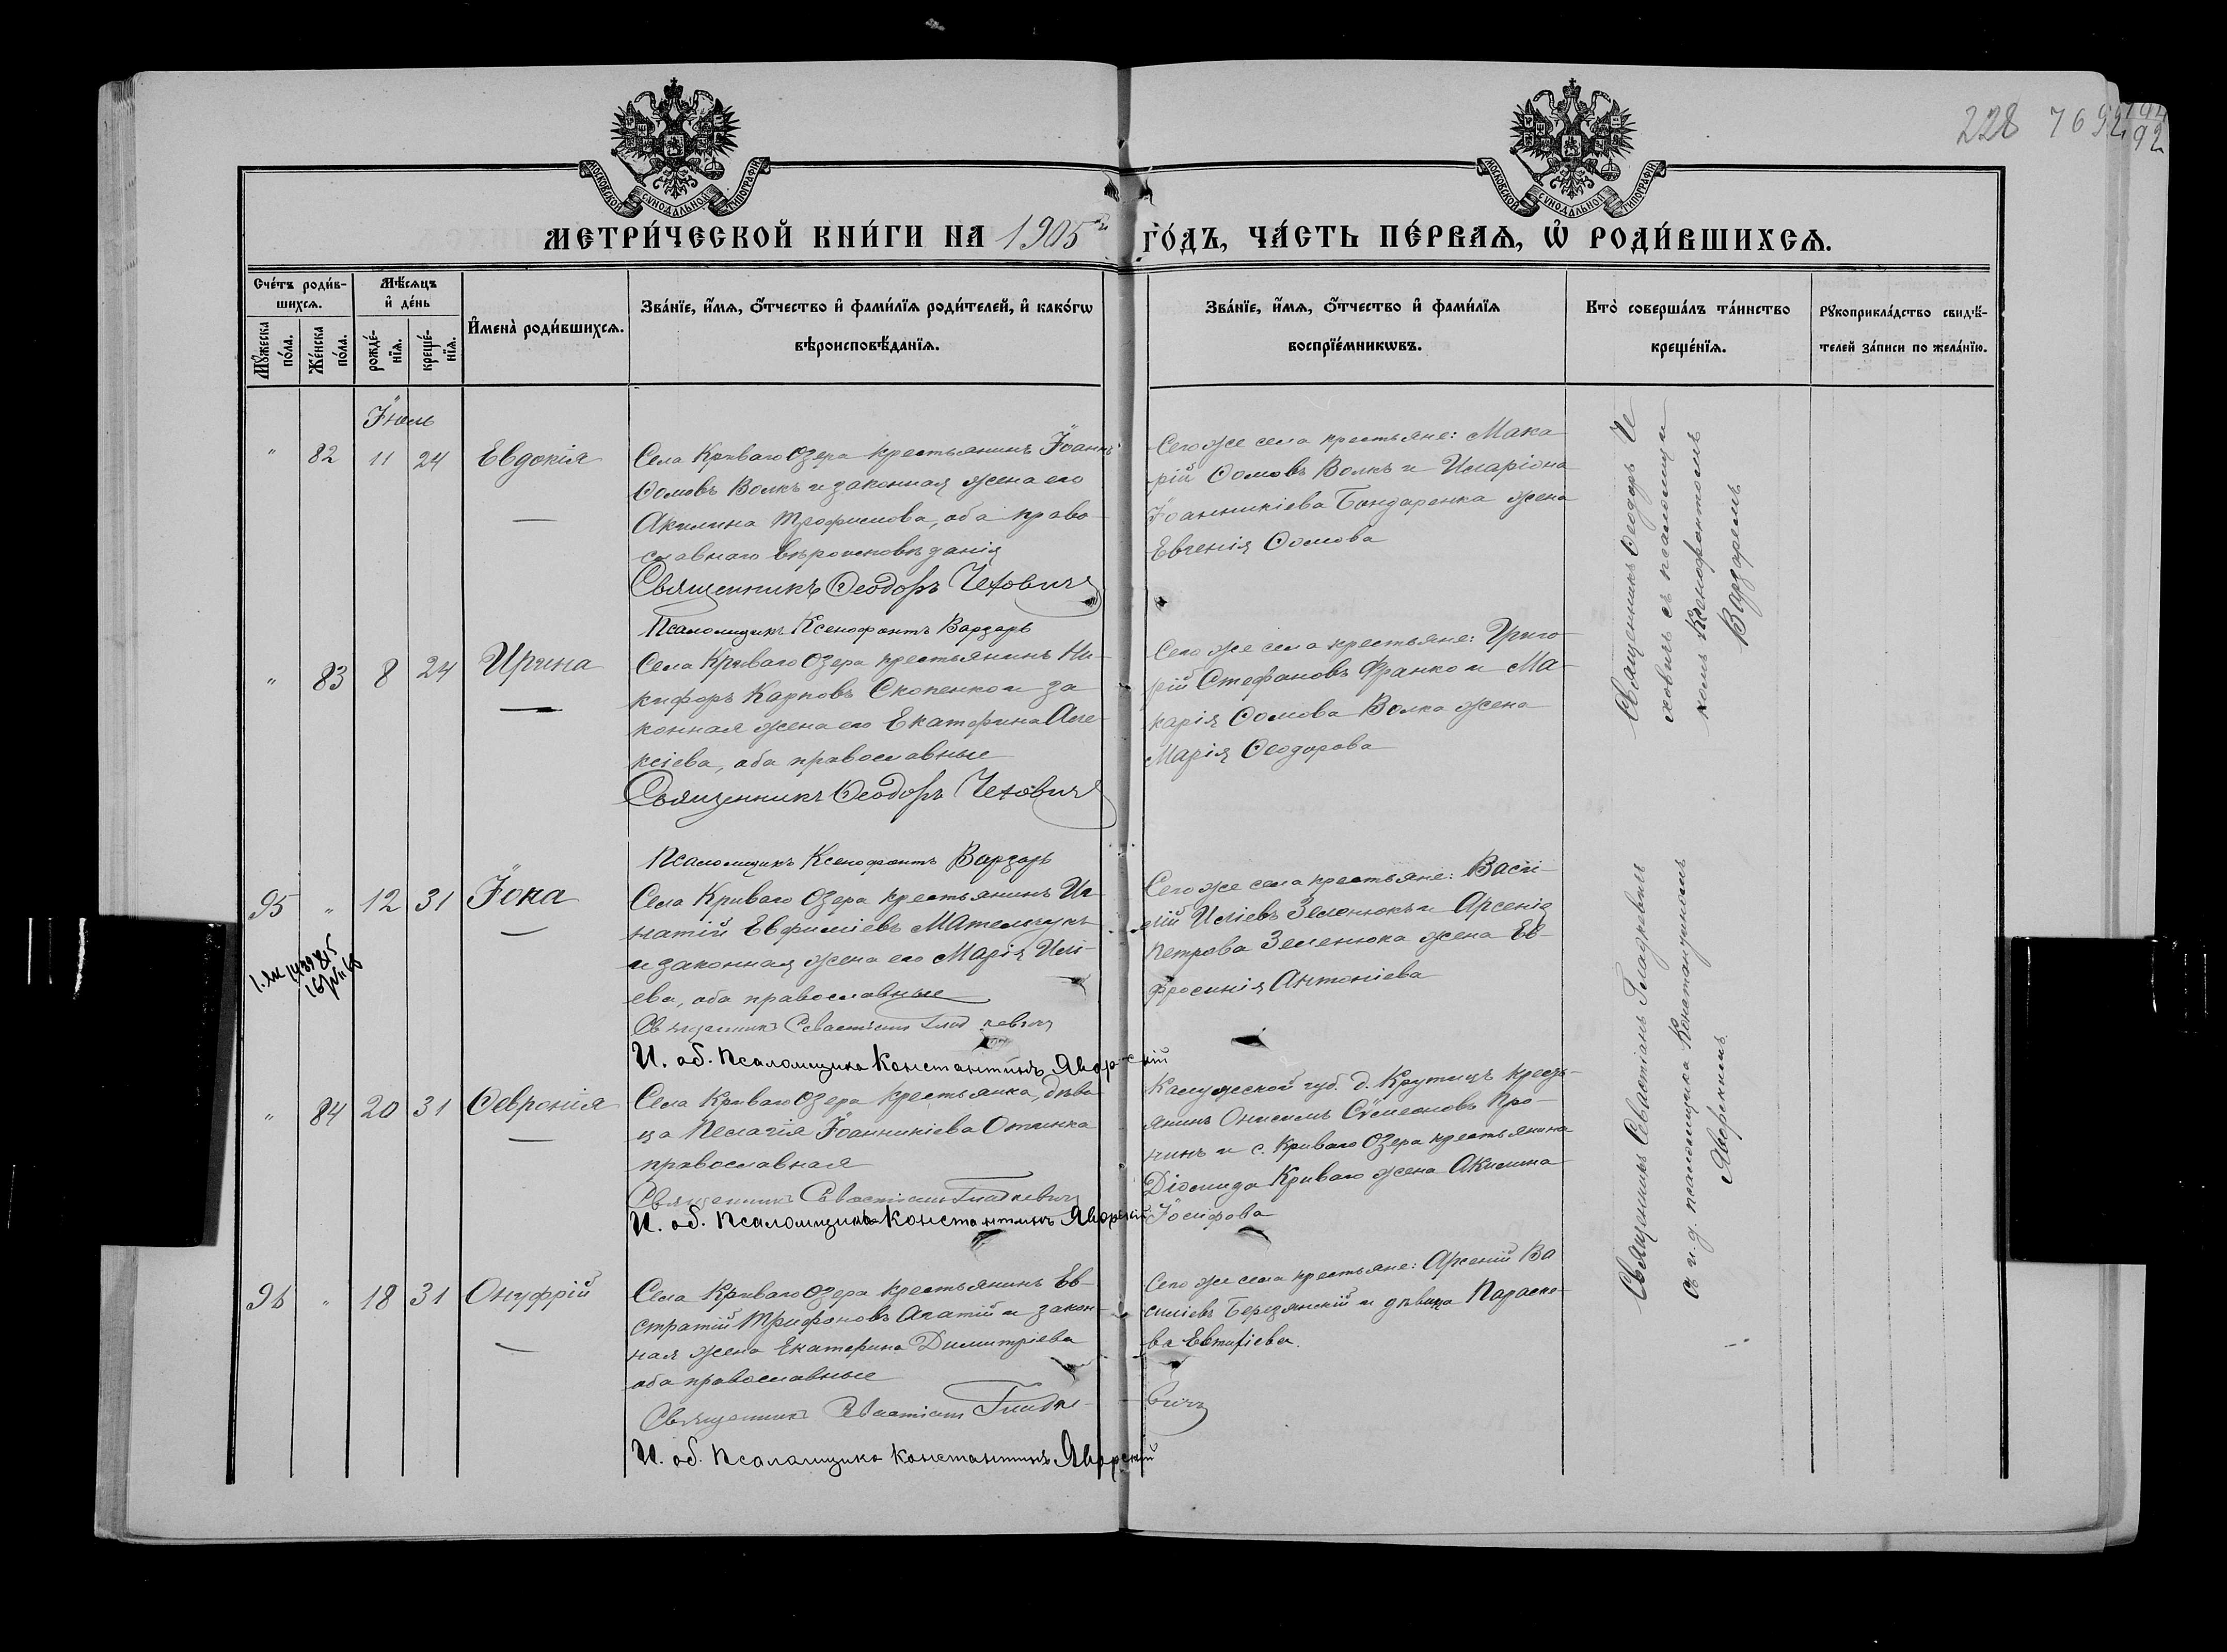 228 76 92
92
МОСКОВСКОЙ СУНОДАЛЬНОЙ ТИПОГРАФІИ
МОСКОВСКОЙ СУНОДАЛЬНОЙ ТИПОГРАФІИ
МЕТРИ́ЧЕСКОЙ КНИ́ГИ НА 1905 й ГО́ДЪ, ЧА́СТЬ ПЕ́РВАѦ, Ѡ РОДИ́ВШИХСѦ.
Сче́тъ роди́в-
шихсѧ.
Мꙋ́жеска по́ла.
Же́нска по́ла.
Мѣ́сѧцъ
и де́нь
рожде́-
нїѧ.
креще́-
нїѧ.
И҆мена̀ роди́вшихсѧ.
Зва́нїе, и҆́мѧ, ѻ҆́тчество и҆ фами́лїѧ роди́телей, и҆ како́гѡ
вѣроисповѣ́данїѧ.
Зва́нїе, и҆́мѧ, ѻ҆́тчество и҆ фами́лїѧ
воспрїе́мникѡвъ.
Кто̀ соверша́лъ та́инство
креще́нїѧ.
Рꙋкоприкла́дство свидѣ́-
телей за́писи по жела́нїю.
Іюль
" 82 11 24 Евдокія
Села Криваго Озера крестьянинъ Іоаннъ
Ѳомовъ Волкъ и законная жена его
Акилина Трофимова, оба право-
славнаго вѣроисповѣданія
Священникъ Ѳеодоръ Чехович
Псаломщикъ Ксенофонтъ Варзарь
Сего же села крестьяне: Мака
рій Ѳомовъ Волкъ и Иларіона
Іоанникіева Бондаренка жена
Евгенія Ѳомова
Священникъ Ѳеодоръ Че
ховичъ съ псаломщи
комъ Ксенофонтомъ
Варзаремъ
" 83 8 24 Ирина
Села Криваго Озера крестьянинъ Ни-
кифоръ Карповъ Скопенко и за
конная жена его Екатерина Але-
ксіева, оба православные
Священникъ Ѳеодоръ Чехович
Псаломщикъ Ксенофонтъ Варзарь
Сего же села крестьяне: Григо
рій Стефановъ Франко и Ма-
карія Ѳомова Волка жена
Марія Ѳеодорова
95 " 12 31 Іона
16
Села Криваго Озера крестьянинъ Иг
натій Евфиміевъ Мательчукъ
и законная жена его Марія Илі-
ева, оба православные
Священникъ Севастіанъ Гладкевич
И. об. Псаломщика Константинъ Яворскій
Сего же села крестьяне: Васи-
лій Иліевъ Зеленюкъ и Арсенія
Петрова Зеленюка жена Ев-
фросинія Антоніева
Священникъ Севастіанъ Гладкевичъ
съ и. д. псаломщика Константиномъ
Яворскимъ
" 84 20 31 Ѳевронія
Села Криваго Озера крестьянка, дѣви
ца Пелагія Іоанникіева
православная
Священникъ Севастіанъ Гладкевич
И. об. Псаломщика Константинъ Яворскій
Калужской губ. д. Крутицъ кресть-
янинъ Онисимъ Сѵмеоновъ Про-
нинъ и с. Криваго Озера крестьянина
Діомида Криваго жена Акилина
Іосифова
96 " 18 31 Онуфрій
Села Криваго Озера крестьянинъ Ев-
стратій Трифоновъ Апатій и закон-
ная жена Екатерина Димитріева
оба православные
Священникъ Севастіанъ Гладке-вичъ
И. об. Псаломщика Константинъ Яворскій
Сего же села крестьяне: Арсеній Ва
силіевъ Березянскій и дѣвица Параске-
ва Евтихіева.